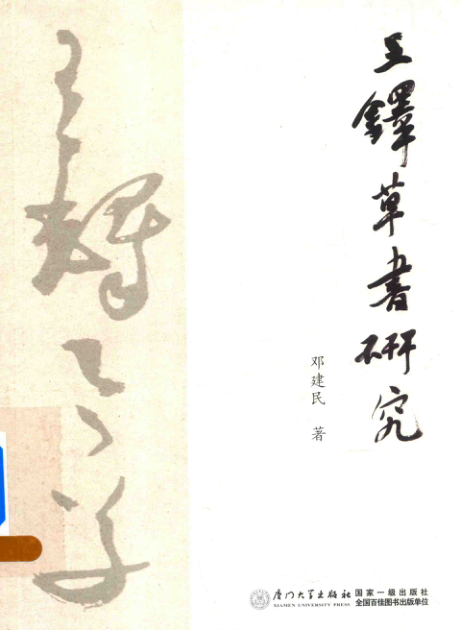 王铎草书研究
邓建民 著
厦门大学出版社
XIAMEN UNIVERSITY PRESS
国家一级出版社
全国百佳图书出版单位